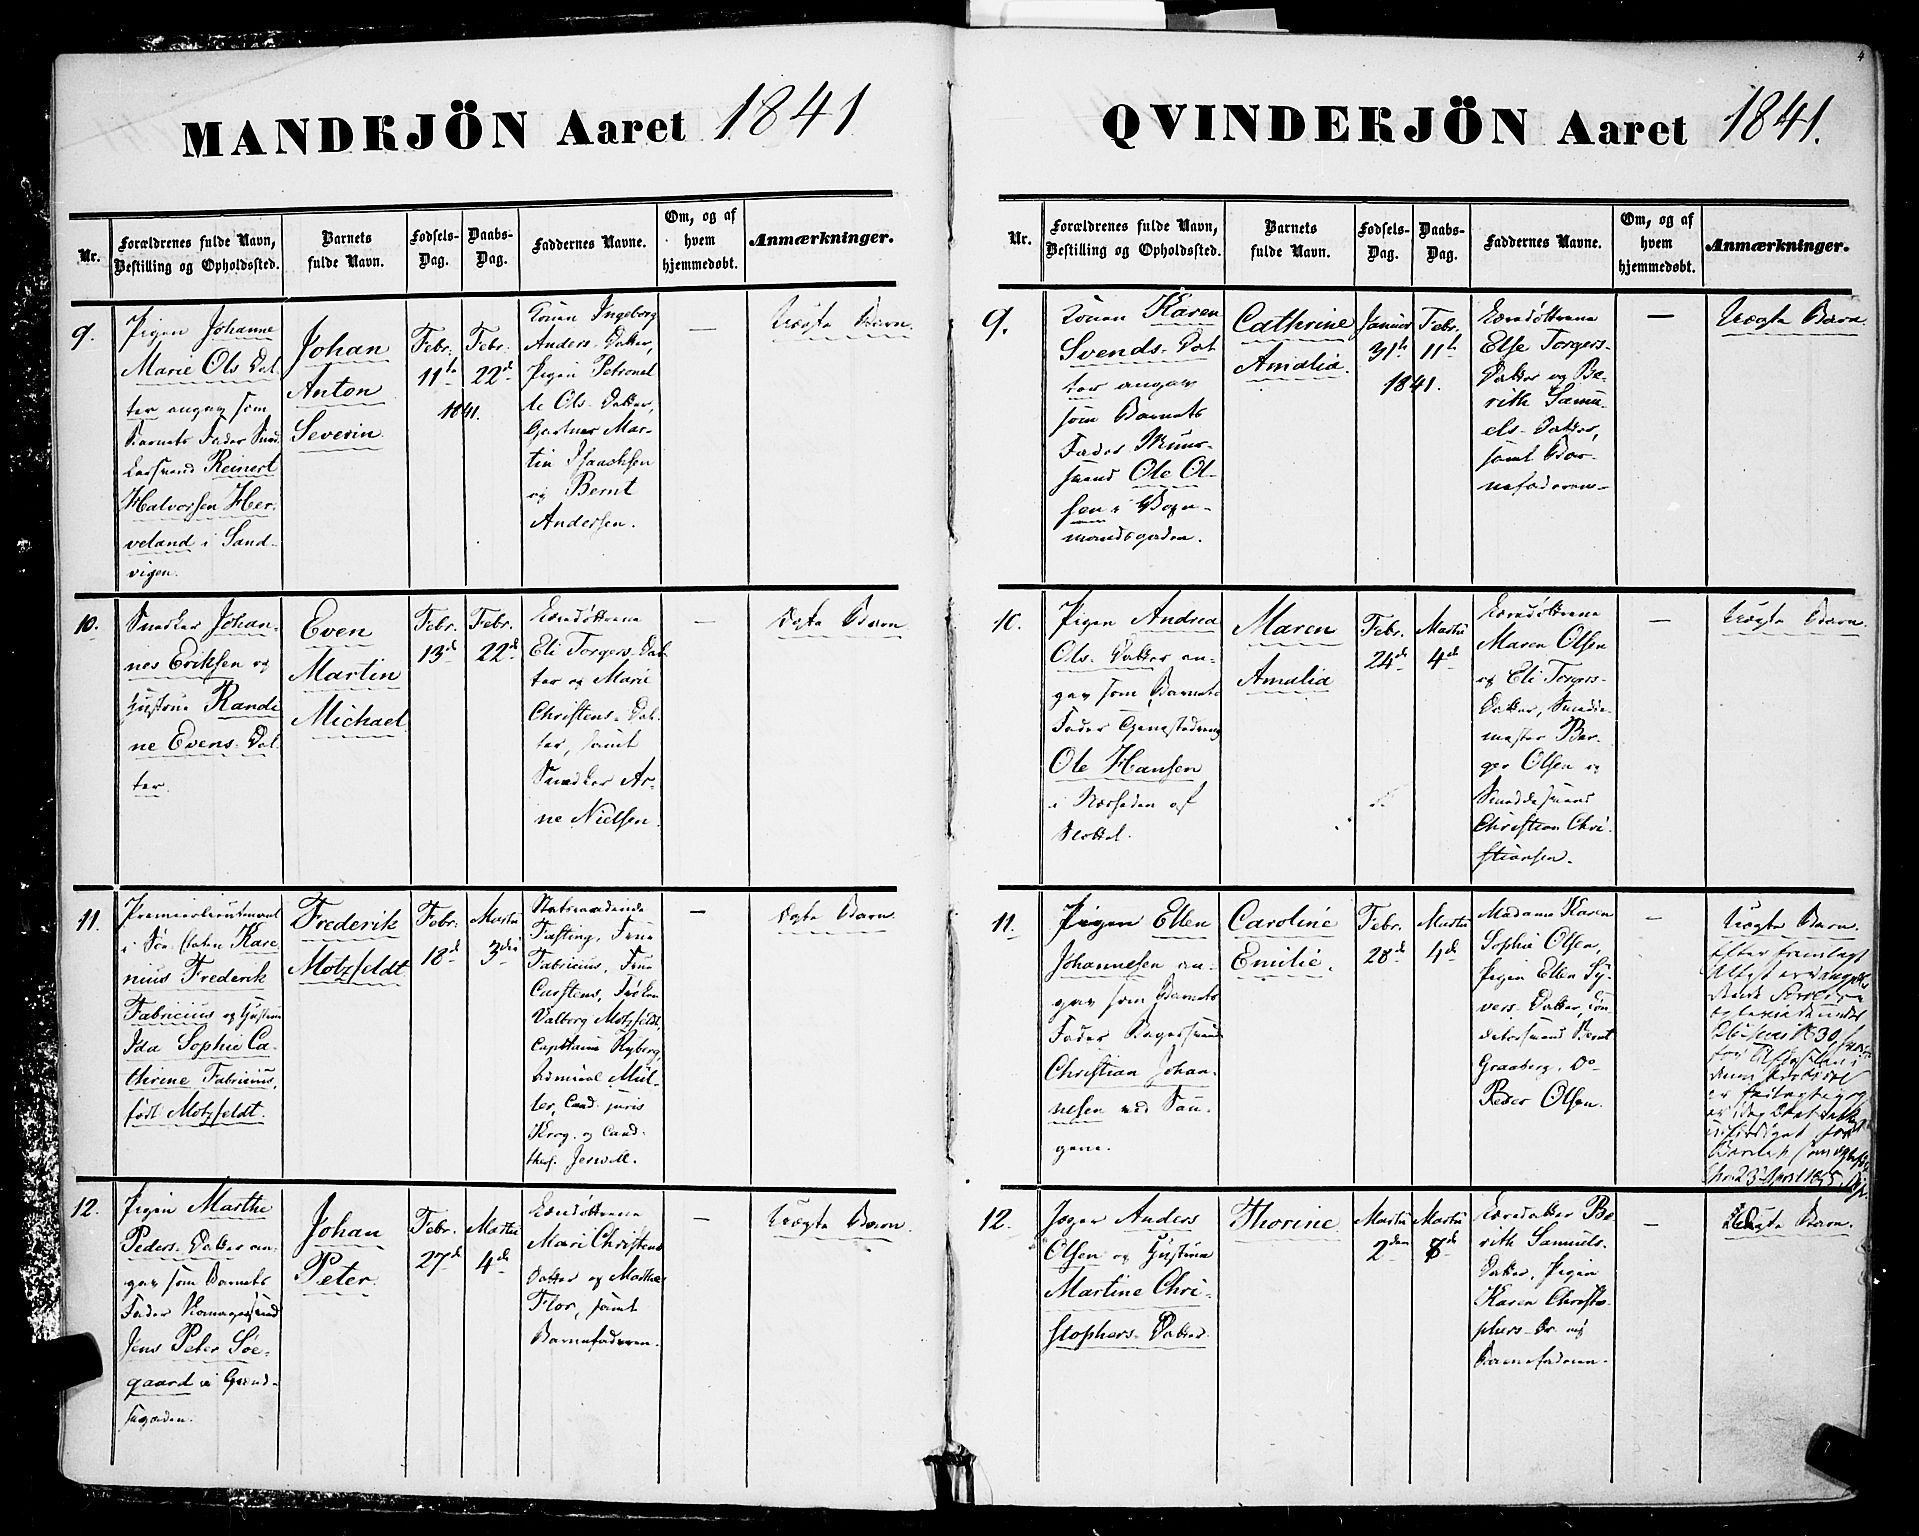 MANDKJÖN Aaret 1841
Nr.
Forældrenes fulde Navn,
Bestilling og Opholdssted.
Barnets
fulde Navn.
Fødsels-
Dag.
Daabs-
Dag.
Faddernes Navne.
Om, og af
hvem
hjemmedøbt.
Anmærkninger.
9.
Pigen Johanne
Marie Ols Dat
ter angav som
Barnets Fader
Reinert
Halvorsen Her-
veland i Sand-
vigen.
Johan
Anton
Severin
Febr.
11th
Febr.
22d
1841.
Konen Ingeborg
Anders-Datter,
Pigen Petronel
le Ols-Datter,
Gartner Mar-
tin Isaachsen
og Bernt
Andersen.
—
Uægte Barn.
10.
Snedker Johan-
nes Eriksen og
Hustrue Randi
ne Evens-Dat
ter.
Even
Martin
Michael
Febr.
13d
Febr.
22d
Eli Torgers-Dat
ter og Marie
Christens-Dat-
ter, samt
Snedker Ar-
ne Nielsen.
—
Ægte Barn
11.
Premierlieutenant
i Søe-Etaten Kare
nius Frederik
Fabricius og Hustrue
Ida Sophie Ca-
thrine Fabricius,
født Motzfeldt.
Frederik
Motzfeldt
Febr.
18d
Martii
3die
Statsraadinde
Fasting, Frue
Fabricius, Frue
Carstens, Frøken
Valborg Motzfeldt,
Capitaine Ryberg,
Admiral Mül-
ler, Cand. juris
Krog, og Cand.
theol.
—
Ægte Barn.
12.
Pigen Marthe
Peders-Datter an-
gav som Barnets
Fader
Jens Peter Söe-
gaard i
Johan
Peter.
Febr.
27d
Martii
4de
Mari Christens
Datter og Marthe
Flor, samt
Barnefaderen.
—
Uægte Barn.
QVINDEKJÖN Aaret 1841.
4
Nr.
Forældrenes fulde Navn,
Bestilling og Opholdssted.
Barnets
fulde Navn.
Fødsels-
Dag.
Daabs-
Dag.
Faddernes Navne.
Om, og af
hvem
hjemmedøbt.
Anmærkninger.
9.
Konen Karen
Svends-Dat
ter angav
som Barnets
Fader Muur-
svend Ole Ol-
sen i
Cathrine
Amalia.
Januar
31th
Febr.
11th
1841.
Else Torgers-
Datter og Be-
rith Samu-
els-Datter,
samt Bar-
nefaderen-
—
Uægte Barn
10.
Pigen Andrea
Ols-Datter an-
gav som Barnets
Fader
Ole Hansen
i Nærheden af
Slottet.
Maren
Amalia
Febr.
24de
Martii
4de
Maren Olsen
og Eli Torgers-
Datter, Smedde-
mester Bir-
ger Olsen og
Smeddesvend
Christian Chri-
stiansen.
—
Uægte Barn.
11.
Pigen Ellen
Johannesen an-
gav som Barnets
Fader Bagersvend
Christian Johan-
nesen ved
Caroline
Emilie.
Febr.
28de
Martii
4de
Madame Karen
Sophie Olsen,
Pigen Ellen Sy-
vers-Datter,
Bernt
Graaberg, Do
Peder Olsen.
—
Uægte Barn.
Efter fremlagt
12.
Anders
Olsen og Hustrue
Martine Chri-
stophers-Datter.
Thorine
Martii
2den
Martii
8de
Be-
rith Samuels-
Datter, Pigen
Karen Christo-
phers-Dr. og
Barnefaderen.
—
Ægte Barn.